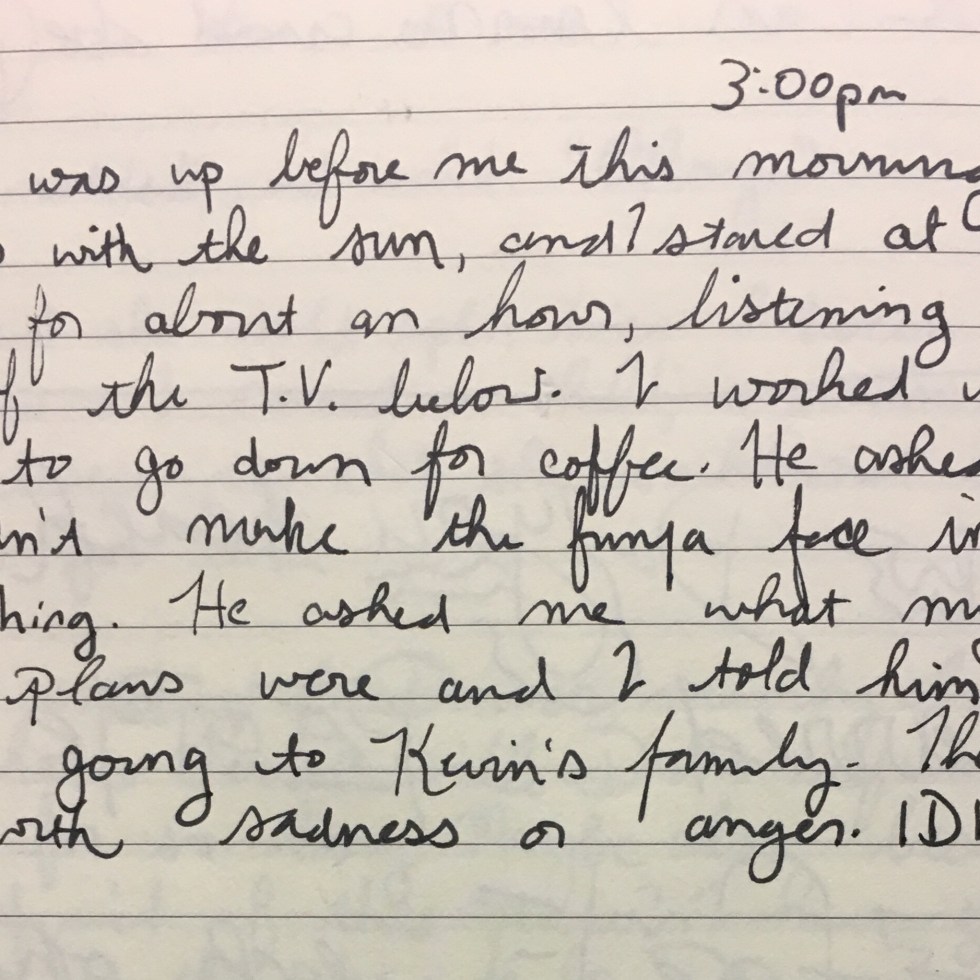 3:00pm
was up before me this mornin
with the sun, and I stared at
for about an hour, listening
the T.V. below. I worked
to go down for coffee. He aske
n't make the face in
hing. He asked me what m
plans were and I told him
going to Kevin's family. Th
sadness or anger. ID